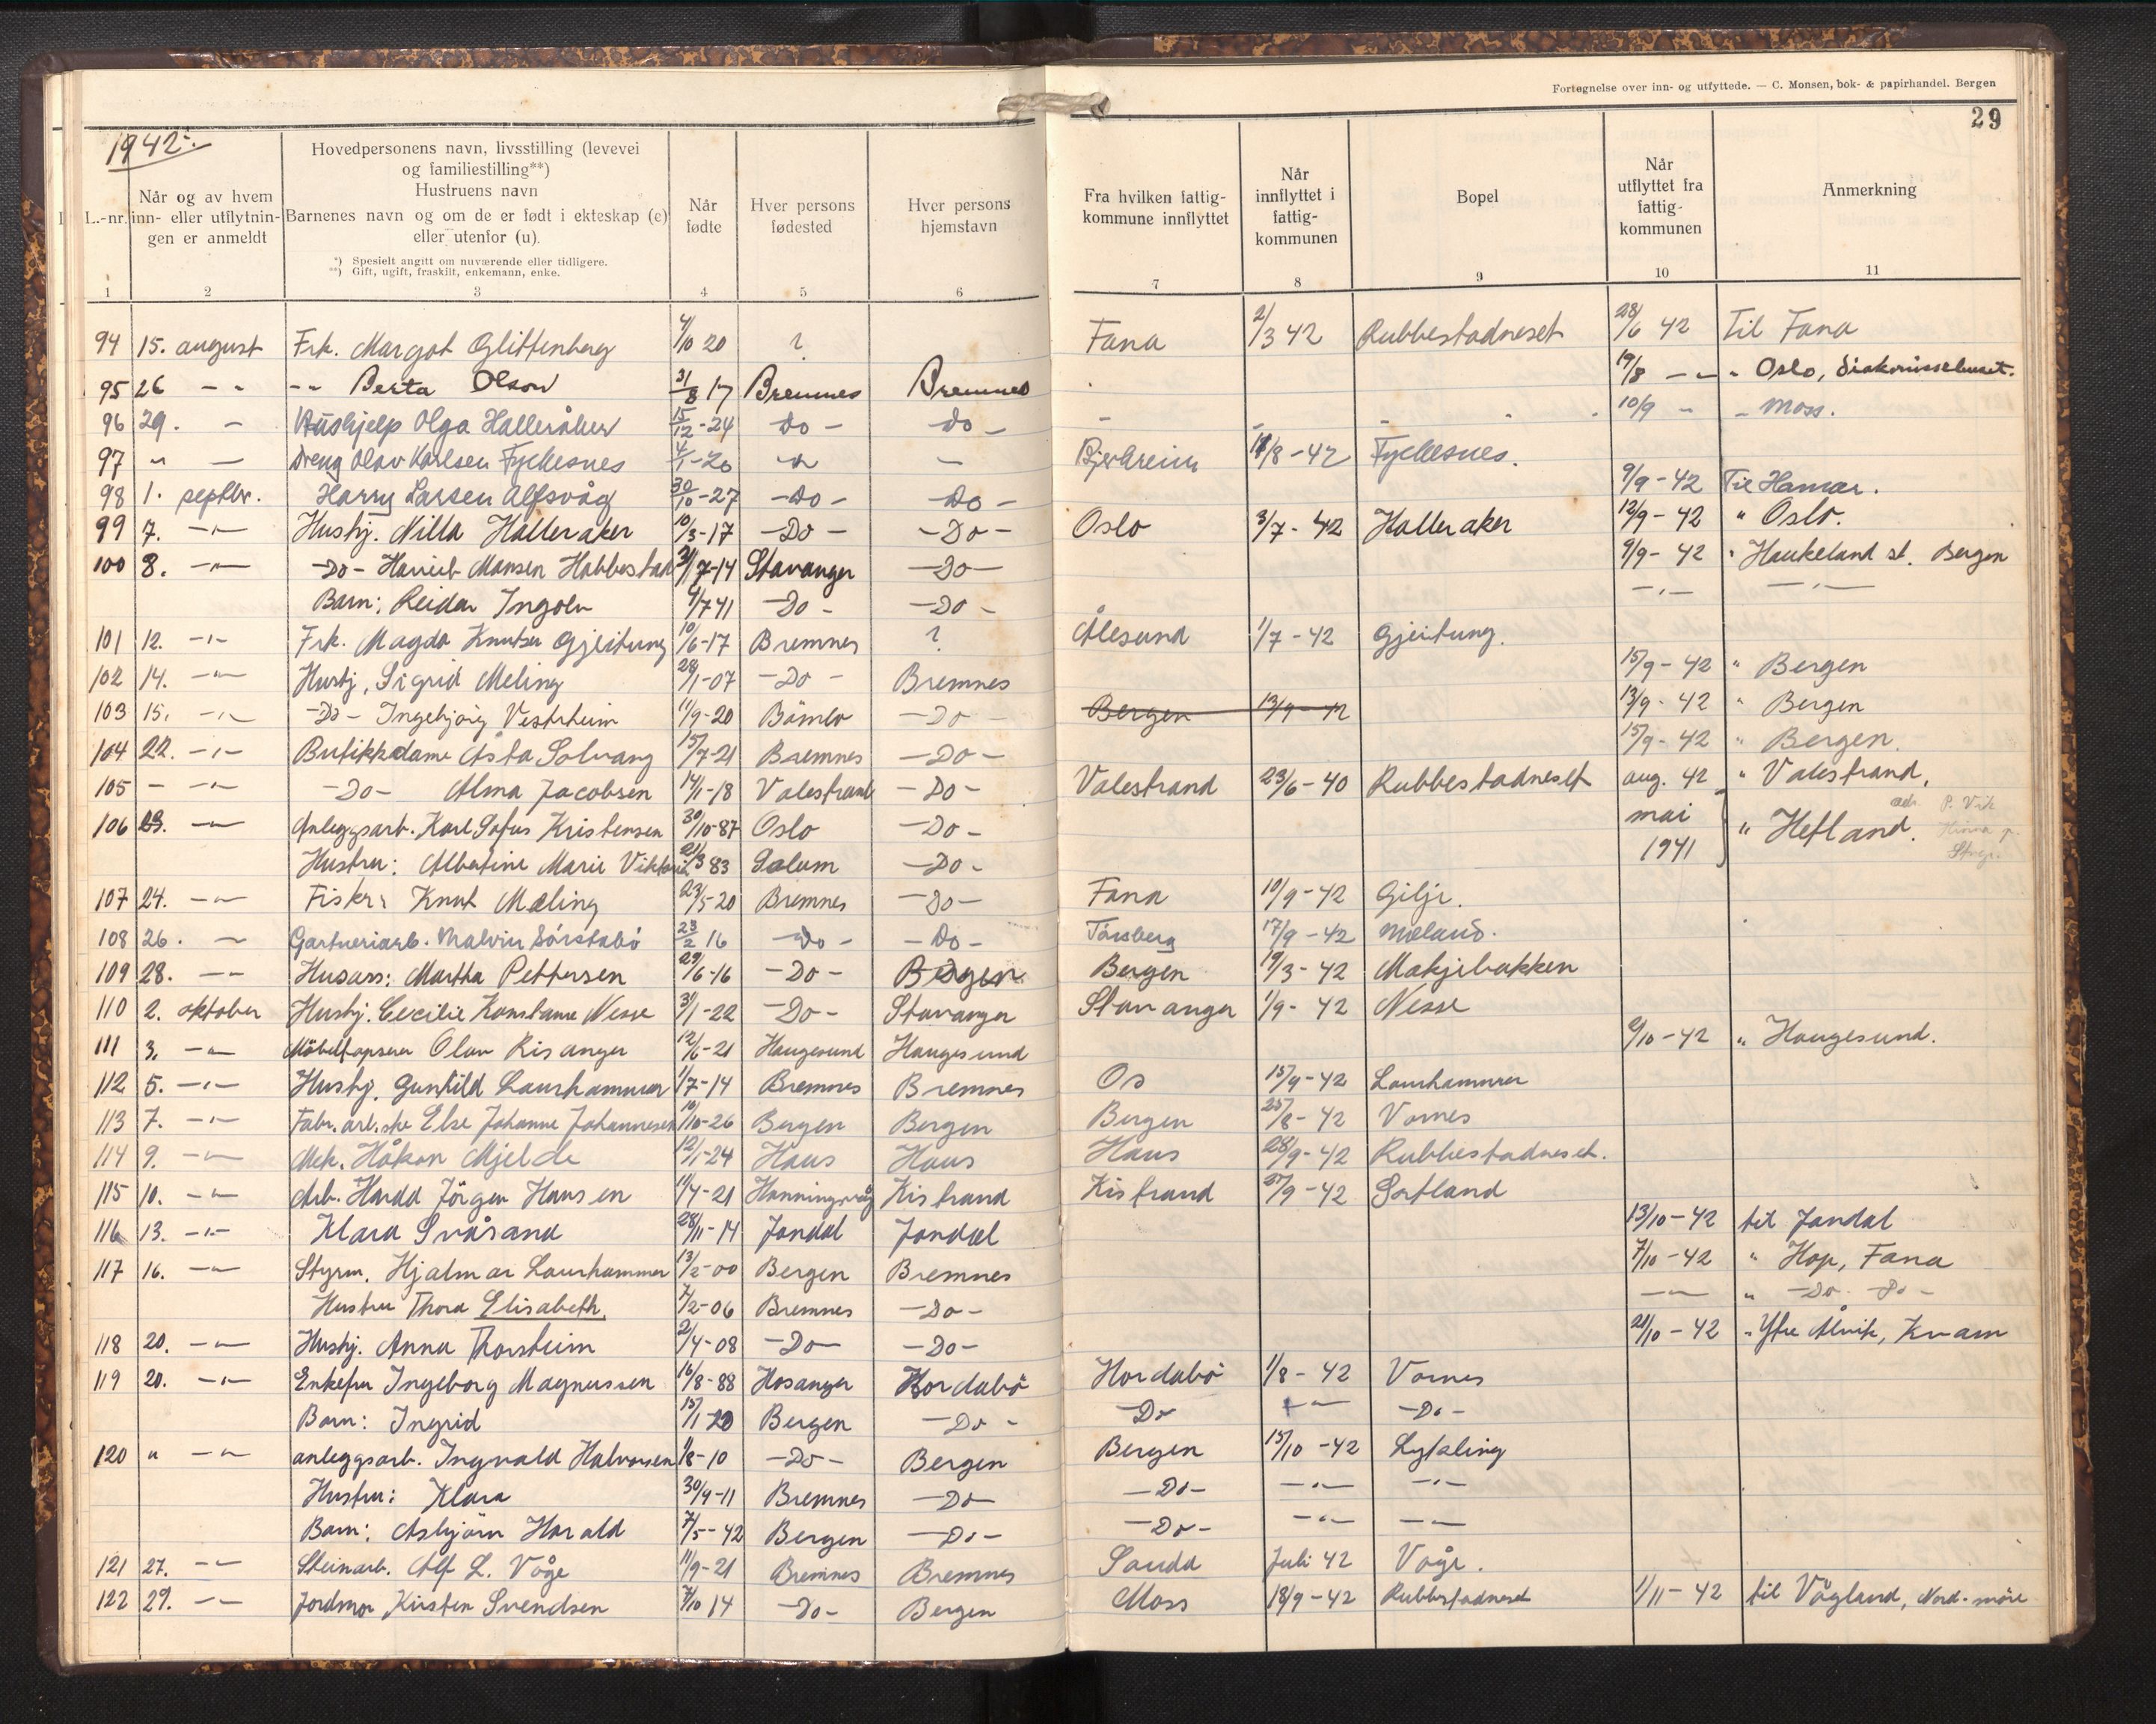 Fortegnelse over inn- og utflyttede. — C. Monsen, bok- & papirhandel. Bergen
29
1942.
L.-nr.
Når og av hvem inn- eller utflytningen er anmeldt
Hovedpersonens navn, livsstilling (levevei og familiestilling**)
Hustruens navn
Barnenes navn og om de er født i ekteskap (e) eller utenfor (u).
*) Spesielt angitt om nuværende eller tidligere.
**) Gift, ugift, fraskilt, enkemann, enke.
Når fødte
Hver persons fødested
Hver persons hjemstavn
Fra hvilken fattigkommune innflyttet
Når innflyttet i fattigkommunen
Bopel
Når utflyttet fra fattigkommunen
Anmerkning
1 2 3 4 5 6 7 8 9 10 11
94 15. august Frk. Margot Glittenberg 4/10 20 ? Fana 2/3 42 Rubbestadneset 28/6 42 Til Fana
95 26 - - -"- Berta Olson 31/8 17 Bremnes Bremnes 19/8 -"- " Oslo, Diakonissehuset.
96 29. - Hushjelp Olga Halleråker 15/12-24 -Do- -Do- 10/9 " - Moss.
97 " - Dreng Olav Karlsen Fyllesnes 4/1-20 -"- - Bjerkreim 11/8-42 Fyllesnes.
98 1. septbr. Harry Larsen Alfsvåg 30/10-27 -Do- -Do- 9/9-42 Til Hamar.
99 7. -"- Hushj. Nilla Halleraker 10/3-17 -Do- -Do- Oslo 3/7-42 Halleraker 12/9-42 " Oslo.
100 8. -"- -Do- Mansen Habbestad 31/7-14 Stavanger -Do- 9/9-42 " Haukeland st. Bergen
Barn: Reidar Ingolv 4/7 41 -Do- -Do- -"- -"-
101 12. -"- Frk. Magda Knutsen Gjeitung 10/6-17 Bremnes ? Ålesund 1/7-42 Gjeitung.
102 14. -"- Hushj. Sigrid Meling 28/1-07 -Do- Bremnes 15/9-42 " Bergen
103 15. -"- -Do- Ingebjörg Vestrheim 11/9-20 Bömlo -Do- Bergen 13/9-42 13/9-42 " Bergen
104 22. -"- Butikkdame Åsta Solvang 15/7-21 Bremnes -Do- 15/9-42 " Bergen.
105 - -"- -Do- Alma Jacobsen 14/11-18 Valestrand -Do- Valestrand 23/6-40 Rubbestadneset aug. 42 " Valestrand,
106 23. -"- Anleggsarb. Karl Sofus Kristensen 30/10-87 Oslo -Do- mai 1941 " Hetland. adr. P. Vik
Hustru: Albertine Marie Viktoria 21/3 83 Solum -Do-
107 24. -"- Fisker: Knut Meling 23/5-20 Bremnes -Do- Fana 10/9-42 Gilje.
108 26. -"- Gartneriarb. Malvin Sörstabö 23/2 16 -Do- -Do- Tönsberg 17/9-42 Meland.
109 28. -- Husass: Martha Pettersen 29/6-16 -Do- Bergen Bergen 19/3-42 Mækjebakken
110 2. oktober Hushj. Cecilie Konstanse Nesse 31/1-22 -Do- Stavanger Stavanger 1/9-42 Nesse
111 3. -"- Möbeltapserer Olav Risanger 12/6-21 Haugesund Haugesund 9/10-42 " Haugesund.
112 5. -"- Hushj. Gunhild Laurhammer 1/7-14 Bremnes Bremnes Os 15/9-42 Laurhammer
113 7. -"- Fabr.arb.ske Else Johanne Johannesen 10/10-26 Bergen Bergen Bergen 25/8-42 Vornes
114 9. -"- Mek. Håkon Mjelde 12/1-24 Haus Haus Haus 28/9-42 Rubbestadneset.
115 10. -"- Arb. Hardd Jörgen Hansen 11/4-21 Honningsvåg Kistrand Kistrand 27/9-42 Sortland
116 13. -"- Klara Svåsand 28/11-14 Jondal Jondal 13/10-42 til Jondal
117 16. -"- Styrm. Hjalmar Laurhammer 13/2-00 Bergen Bremnes 7/10-42 " Hop, Fana
Hustru Thora Elisabeth. 7/2-06 Bremnes -Do- -"- " -Do- Do-
118 20. -"- Hushj. Anna Thorsheim 2/4-08 -Do- -Do- 21/10-42 " Ytre Ålvik, Kvam
119 20. -"- Enkefru Ingeborg Magnussen 16/8-88 Hosanger Hordabö Hordabö 1/8-42 Vornes
Barn: Ingrid 15/1-20 Bergen -Do- Do -"- -Do-
120 " -"- anleggsarb. Ingvald Halvorsen 1/8-10 -Do- Bergen Bergen 15/10-42 Lykling
Hustru: Klara 30/9-11 Bremnes -Do- -Do- -"- -"-
Barn: Asbjörn Harald 7/5-42 Bergen -Do- -Do- -"- -"-
121 27. -"- Steinarb. Alf L. Våge 11/9-21 Bremnes Bremnes Sauda Juli 42 Våge.
122 29. -"- Jordmor Kirsten Svendsen 7/10 14 -Do- Bergen Moss 18/9-42 Rubbestadneset 1/11-42 til Vågland, Nord-möre